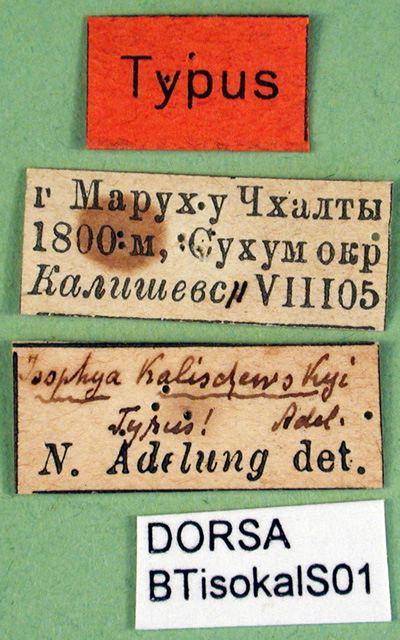 Typus
г Марух·у Чхалты
1800:м, Сухум окр
Калишевс VIII05
Isophya Kalischewskyi
Typus! Adel.
N. Adelung det.
DORSA
BTisokalS01